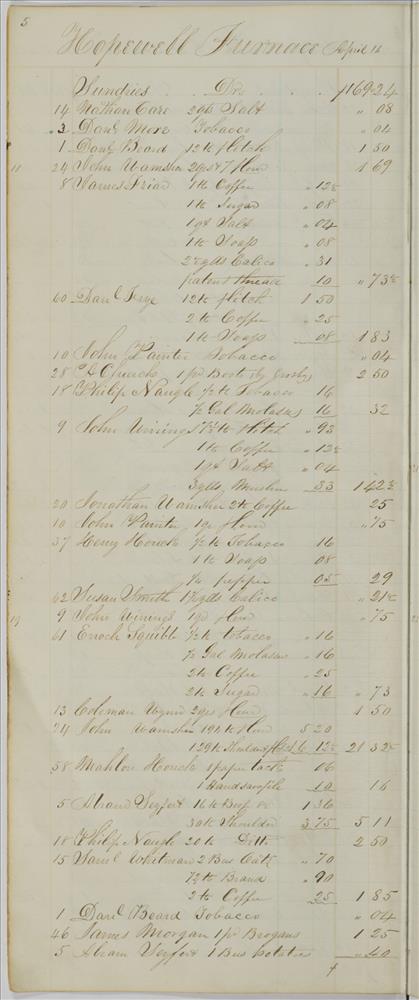 5
Hopewell Furnace April 16
Sundries Dr. $169.24
14 Nathan Care 20 lb Salt " 08
2 Danl. Move Tobacco " 04
1 Danl. Beard 12 lb flitch 1 50
24 John Wamsher 2 qrs & 7 flour 1 69
8 James Friad 1 lb Coffee " 12½
1 lb Sugar " 08
1 qt Salt " 04
1 lb Soap " 08
2 yds Calico " 31
patent thread 10 " 73½
60 Danl. Frye 12 lb flitch 1 50
2 lb Coffee " 25
1 lb Soap 08 1 83
10 John Painter Tobacco " 04
28 Church 1 pr Boots by Grosby 2 50
18 Philip Naugle ½ lb Tobacco 16
½ Gal Molasses 16 32
9 John Winings 7½ lb flitch " 93
1 lb Coffee " 12½
1 qt Salt " 04
3 yds Muslin 33 1 42½
20 Jonathan Wamsher 2 lb Coffee 25
10 John Painter 1 qr flour " 75
37 Henry Houck ½ lb Tobacco 16
1 lb Soap 08
¼ pepper 05 29
62 Susan Smith yds Calico " 21½
9 John Winings 1 qr flour " 75
61 Enoch Squibb ½ lb tobacco " 16
½ Gal Molasses " 16
2 lb Coffee " 25
2 lb Sugar " 16 " 73
13 Coleman Wynn 2 qrs flour 1 50
24 John Wamsher lb flour 5 20
129 lb Shoulder 16 12½ 21 32½
58 Mahlon Houck 1 paper tacks 06
1 Handsawfile 10 16
5 Abram Seyfert 16 lb Beef 1 36
30 lb Shoulder 3 75 5 11
18 Philip Naugle 20 lb Ditto 2 50
15 Saml. Whitman 2 Bus Oats " 70
" 90
2 lb Coffee 25 1 85
1 Danl. Beard Tobacco " 04
46 James Morgan 1 pr Brogans 1 25
5 Abram Seyfert 1 Bus potatoes " 40